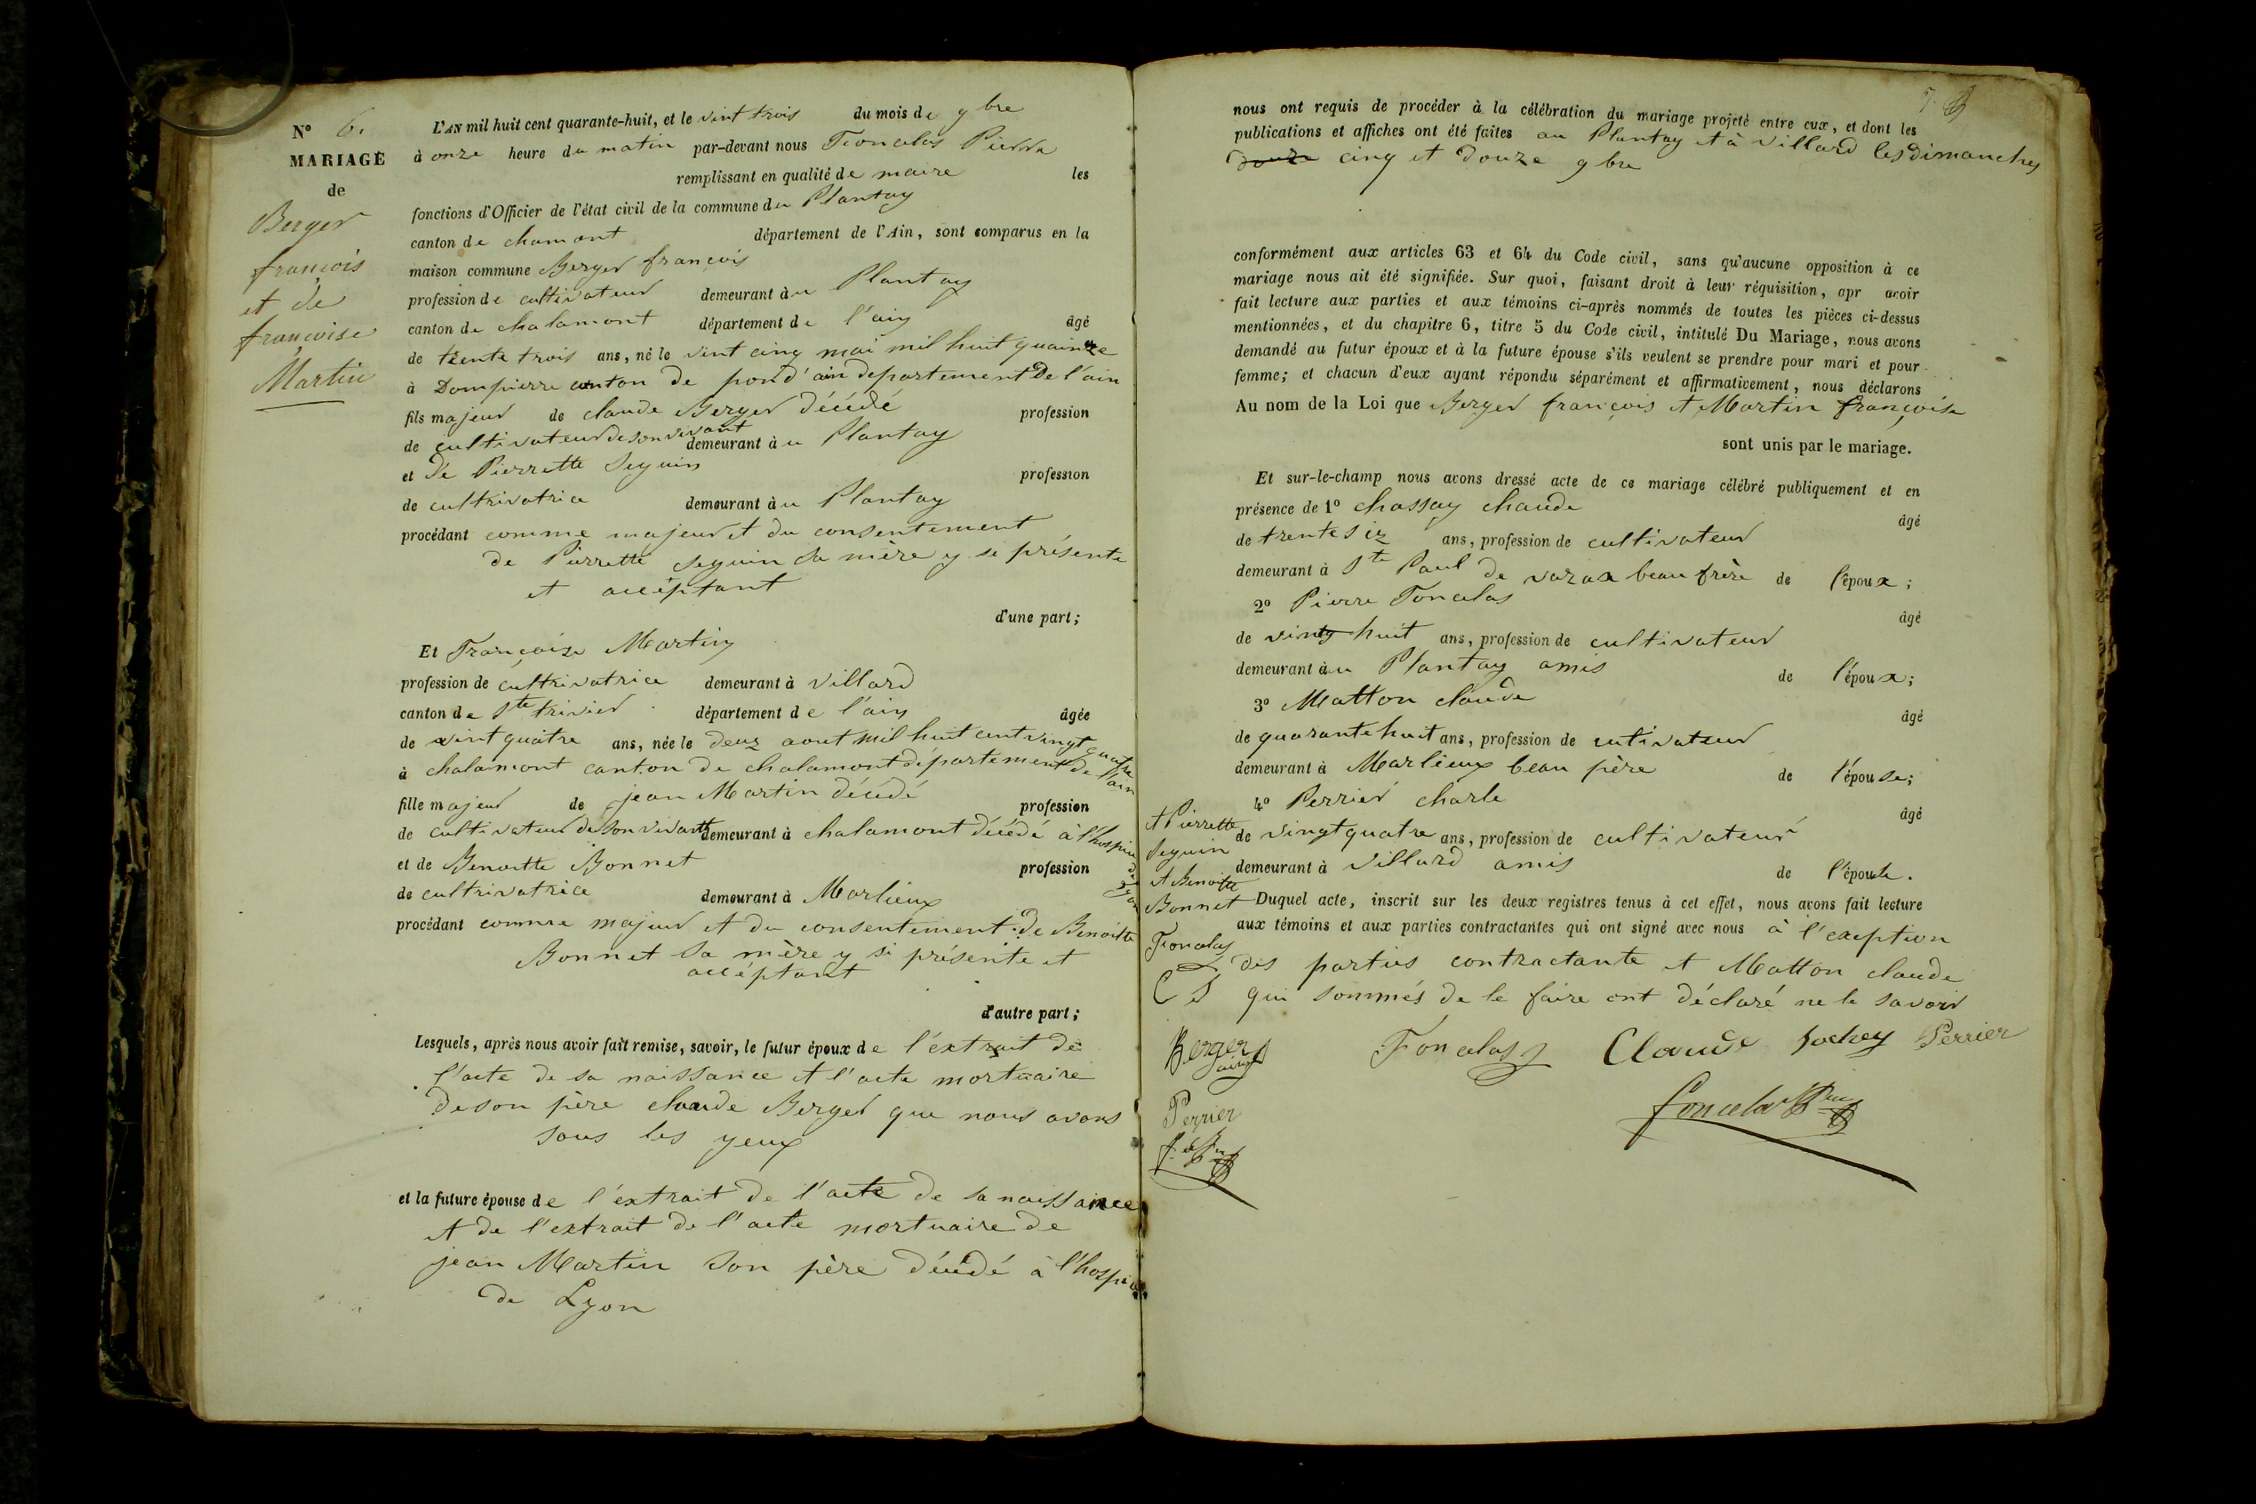 N° 6.
MARIAGE
de
Berger
françois
et de
françoise
Martin
L'AN mil huit cent quarante-huit, et le vint trois du mois de 9bre
à onze heure du matin par-devant nous Foncelas Pierre
remplissant en qualité de maire les
fonctions d'Officier de l'état civil de la commune du Plantay
canton de chamont département de l'Ain, sont comparus en la
maison commune Berger françois
profession de cultivateur demeurant àu Plantay
canton de chalamont département de l'ain âgé
de trente trois ans, né le vint cinq mai mil huit quainze
à Dompierre canton de pond'ain departement De l'ain
fils majeur de claude Berger décédé profession
de cultivateur de son vivant demeurant àu Plantay
et de Pierrette Seguin profession
de cultrivatrice demeurant àu Plantay
procédant comme majeur et du consentement
de Pierrette Seguin sa mère y se présente
et accéptant
d'une part;
Et Françoise Martin
profession de cultrivatrice demeurant à villard
canton de Ste trivier département de l'ain âgée
de vint quatre ans, née le deux aout mil huit cent vingt quatre
à chalamont canton de chalamont département de l'ain
fille majeur de jean Martin décédé profession
de cultivateur de son vivant demeurant à chalamont décédé à l'hospice de Lyon
et de Benoitte Bonnet profession
de cultrivatrice demeurant à Marlieux
procédant comme majeur et du consentement de Benoitte
Bonnet sa mère y si présente et
accéptant
d'autre part;
Lesquels, après nous avoir fait remise, savoir, le futur époux de l'extrait de
l'acte de sa naissance et l'acte mortuaire
de son père claude Berger que nous avons
sous les yeux
et la future épouse de l'extrait de l'acte de sa naissance
et de l'extrait de l'acte mortuaire de
jean Martin son père décédé à l'hospice
de Lyon
7.
nous ont requis de procéder à la célébration du mariage projeté entre eux, et dont les
publications et affiches ont été faites au Plantay et à villard les dimanches
douze cinq et douze 9bre
conformément aux articles 63 et 64 du Code civil, sans qu'aucune opposition à ce
mariage nous ait été signifiée. Sur quoi, faisant droit à leur réquisition, apr avoir
fait lecture aux parties et aux témoins ci-après nommés de toutes les pièces ci-dessus
mentionnées, et du chapitre 6, titre 5 du Code civil, intitulé Du Mariage, nous avons
demandé au futur époux et à la future épouse s'ils veulent se prendre pour mari et pour
femme; et chacun d'eux ayant répondu séparément et affirmativement, nous déclarons
Au nom de la Loi que Berger françois et Martin françoise
sont unis par le mariage.
Et sur-le-champ nous avons dressé acte de ce mariage célébré publiquement et en
présence de 1° chassay chaude
âgé
de trente six ans, profession de cultivateur
demeurant à Ste Paul de varax beau frère de l'époux;
2° Pierre Foncelas
âgé
de vingt huit ans, profession de cultivateur
demeurant àu Plantay amis de l'époux;
3° Matton claude
âgé
de quarante huit ans, profession de cutivateur
demeurant à Marlieux beau père de l'épouse;
4° Perrier charle
âgé
de vingt quatre ans, profession de cultivateur
demeurant à villard amis de l'épouse.
Duquel acte, inscrit sur les deux registres tenus à cet effet, nous avons fait lecture
aux témoins et aux parties contractantes qui ont signé avec nous à l'exeption
des parties contractante et Matton claude
qui sommés de le faire ont déclaré ne le savoir
et Pierrette
Seguin
et Benoitte
Bonnet
Foncelas
C S
Berger
Perrier
Foncelas Claude Perrier
foncelas